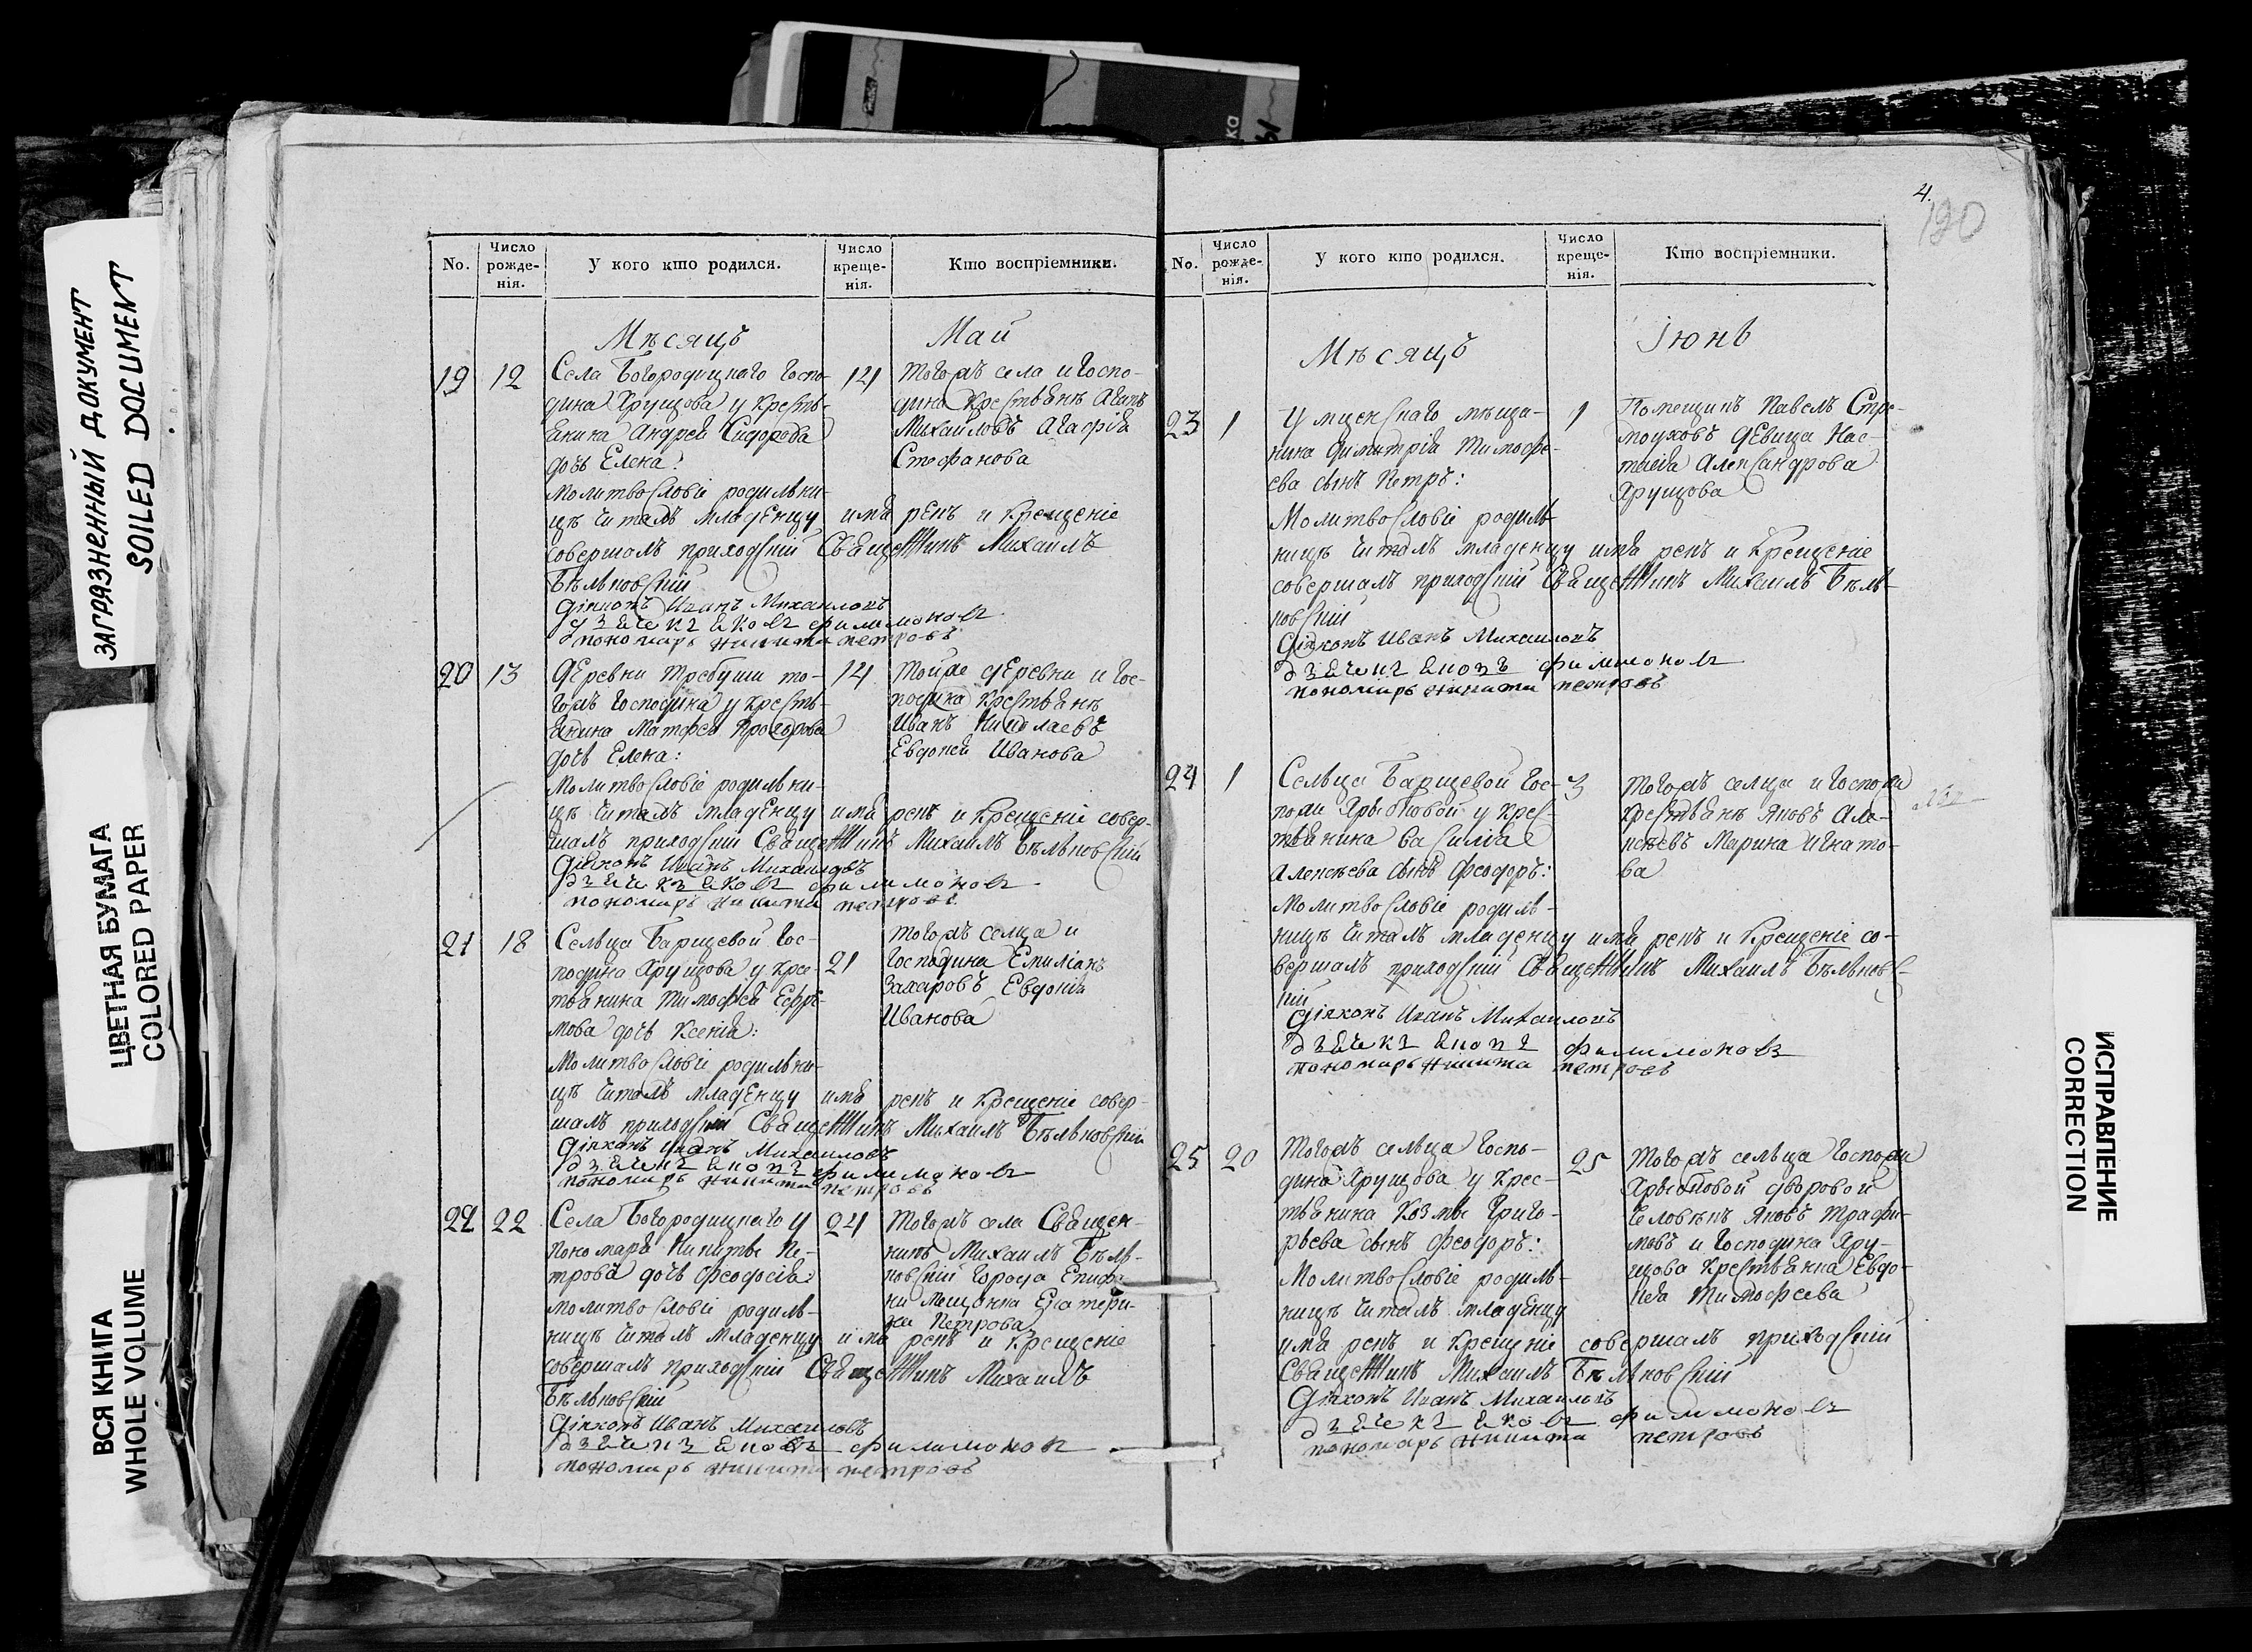 ЗАГРЯЗНЕННЫЙ ДОКУМЕНТ
SOILED DOCUMENT
ЦВЕТНАЯ БУМАГА
COLORED PAPER
ВСЯ КНИГА
WHOLE VOLUME
No.
Число рожде-нія.
У кого кто родился.
Число креще-нія.
Кто воспріемники.
Мѣсяцъ Май
19 12
Села Богородицкаго Госпо-
дина Хрущова у кресть-
янина Андрея Сидорова
дочь Елена:
Молитвословіе родильни-
цѣ читалъ младенцу имя рекъ и крещеніе
совершалъ приходскій Священникъ Михаилъ
Бѣльковскій
Діаконъ Иванъ Михаиловъ
дзечекъ яковъ филимоновъ
пономарь никита петровъ
14
тогожъ села и Госпо-
дина крестьянъ Агапъ
Михаиловъ Агафія
Стефанова
20 13
Деревни Требуши то-
гожъ Господина у кресть-
янина Матфея Прохорова
дочь Елена:
Молитвословіе родильни-
цѣ читалъ младенцу имя рекъ и крещеніе совер-
шалъ приходскій Священникъ Михаилъ Бѣльковскій
Діаконъ Иванъ Михаиловъ
дзечекъ яковъ филимоновъ
пономарь никита петровъ
14
тойже деревни и Гос-
подина крестьянъ
Иванъ Николаевъ
Евдокея Иванова
21 18
Сельца Барщевой Гос-
подина Хрущова у крес-
тьянина Тимофея Ефре-
мова дочь Ксенія:
Молитвословіе родильни-
цѣ читалъ младенцу имя рекъ и крещеніе совер-
шалъ приходскій Священникъ Михаилъ Бѣльковскій
Діаконъ Иванъ Михаиловъ
дзечекъ яковъ филимоновъ
пономарь никита петровъ
21
тогожъ селца и
Господина Емиліанъ
Захаровъ Евдокія
Иванова
22 22
Села Богородицкаго у
пономаря Никиты Пе-
трова дочь Феодосія:
Молитвословіе родиль-
ницѣ читалъ младенцу имя рекъ и крещеніе
совершалъ приходскій Священникъ Михаилъ
Бѣльковскій
Діаконъ Иванъ Михаиловъ
дзечекъ яковъ филимоновъ
пономарь никита петровъ
24
Тогожъ села Священ-
никъ Михаилъ Бѣль-
ковскій города Епифа-
ни мещанка Екатери-
на Петрова
4.
190
No.
Число рожде-нія.
У кого кто родился.
Число креще-нія.
Кто воспріемники.
Мѣсяцъ Іюнь
23 1
У мценскаго мѣща-
нина Димитрія Тимофе-
ева сынъ Петръ:
Молитвословіе родиль-
ницѣ читалъ младенцу имя рекъ и крещеніе
совершалъ приходскій Священникъ Михаилъ Бѣль-
ковскій
Діаконъ Иванъ Михаиловъ
дзечекъ яковъ филимоновъ
пономарь никита петровъ
1
Помещикъ Павелъ Стре-
моуховъ девица Нас-
тасія Александрова
Хрущова
24 1
Сельца Барщевой Гос-
пожи у крес-
тьянина Василія
Алексѣева сынъ Феодоръ:
Молитвословіе родиль-
ницѣ читалъ младенцу имя рекъ и крещеніе со-
вершалъ приходскій Священникъ Михаилъ Бѣльковс-
кій
Діаконъ Иванъ Михаиловъ
дзечекъ яковъ филимоновъ
пономарь никита петровъ
3
тогожъ селца и Госпожи
крестьянъ Яковъ Але-
ксѣевъ Марина Игнато-
ва
25 20
Тогожъ сельца Госпо-
дина Хрущова у крес-
тьянина Козмы Григо-
рьева сынъ Феодоръ:
Молитвословіе родиль-
ницѣ читалъ младенцу
имя рекъ и крещеніе совершалъ приходскій
Священникъ Михаилъ Бѣльковскій
Діаконъ Иванъ Михаиловъ
дзечекъ яковъ филимоновъ
пономарь никита петровъ
25
Тогожъ сельца Госпожи
дворовой
человѣкъ Яковъ Трафи-
мовъ и Господина Хру-
щова крестьянка Евдо-
кея Тимофеева
ИСПРАВЛЕНИЕ
CORRECTION